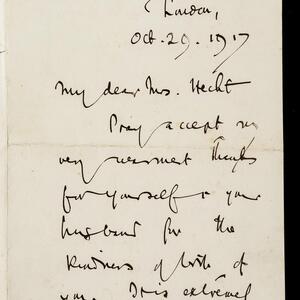 London,
Oct. 29. 1917
My dear Mrs. Hecht
Pray accept my
very warmest thanks
for yourself & your
husband for the
kindness of both of
you. It is extremel